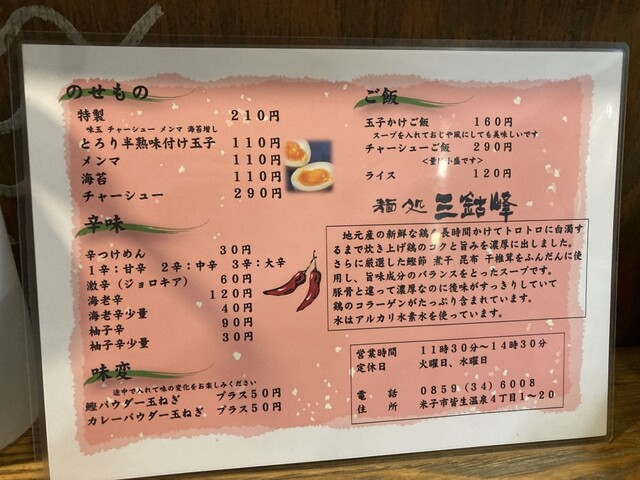 のせもの
特製 210円
味玉 チャーシュー メンマ 海苔増し
とろり半熟味付け玉子 110円
メンマ 110円
海苔 110円
チャーシュー 290円
辛味
辛つけめん 30円
1辛:甘辛 2辛:中辛 3辛:大辛
激辛(ジョロキア) 60円
海老辛 120円
海老辛少量 40円
柚子辛 90円
柚子辛少量 30円
味変
途中で入れて味の変化をお楽しみください
鰹パウダー玉ねぎ プラス50円
カレーパウダー玉ねぎ プラス50円
ご飯
玉子かけご飯 160円
スープを入れておじや風にしても美味しいです
チャーシューご飯 290円
<量は小盛です>
ライス 120円
麺処 三鈷峰
地元産の新鮮な鶏を長時間かけてトロトロに白濁す
るまで炊き上げ鶏のコクと旨みを濃厚に出しました。
さらに厳選した鰹節 煮干 昆布 干椎茸をふんだんに使
用し、旨味成分のバランスをとったスープです。
豚骨と違って濃厚なのに後味がすっきりしていて
鶏のコラーゲンがたっぷり含まれています。
水はアルカリ水素水を使っています。
営業時間 11時30分~14時30分
定休日 火曜日、水曜日
電話 0859(34)6008
住所 米子市皆生温泉4丁目1~20